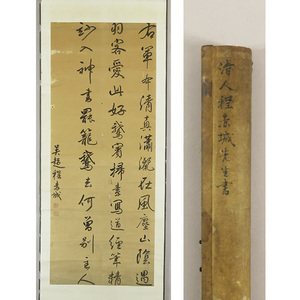 右軍本清真瀟灑在風塵山陰遇
羽客愛此好鵞賓掃素寫道經筆精
妙入神書罷籠鵞去何曾別主人
吳趨程赤城
清人程赤城先生書